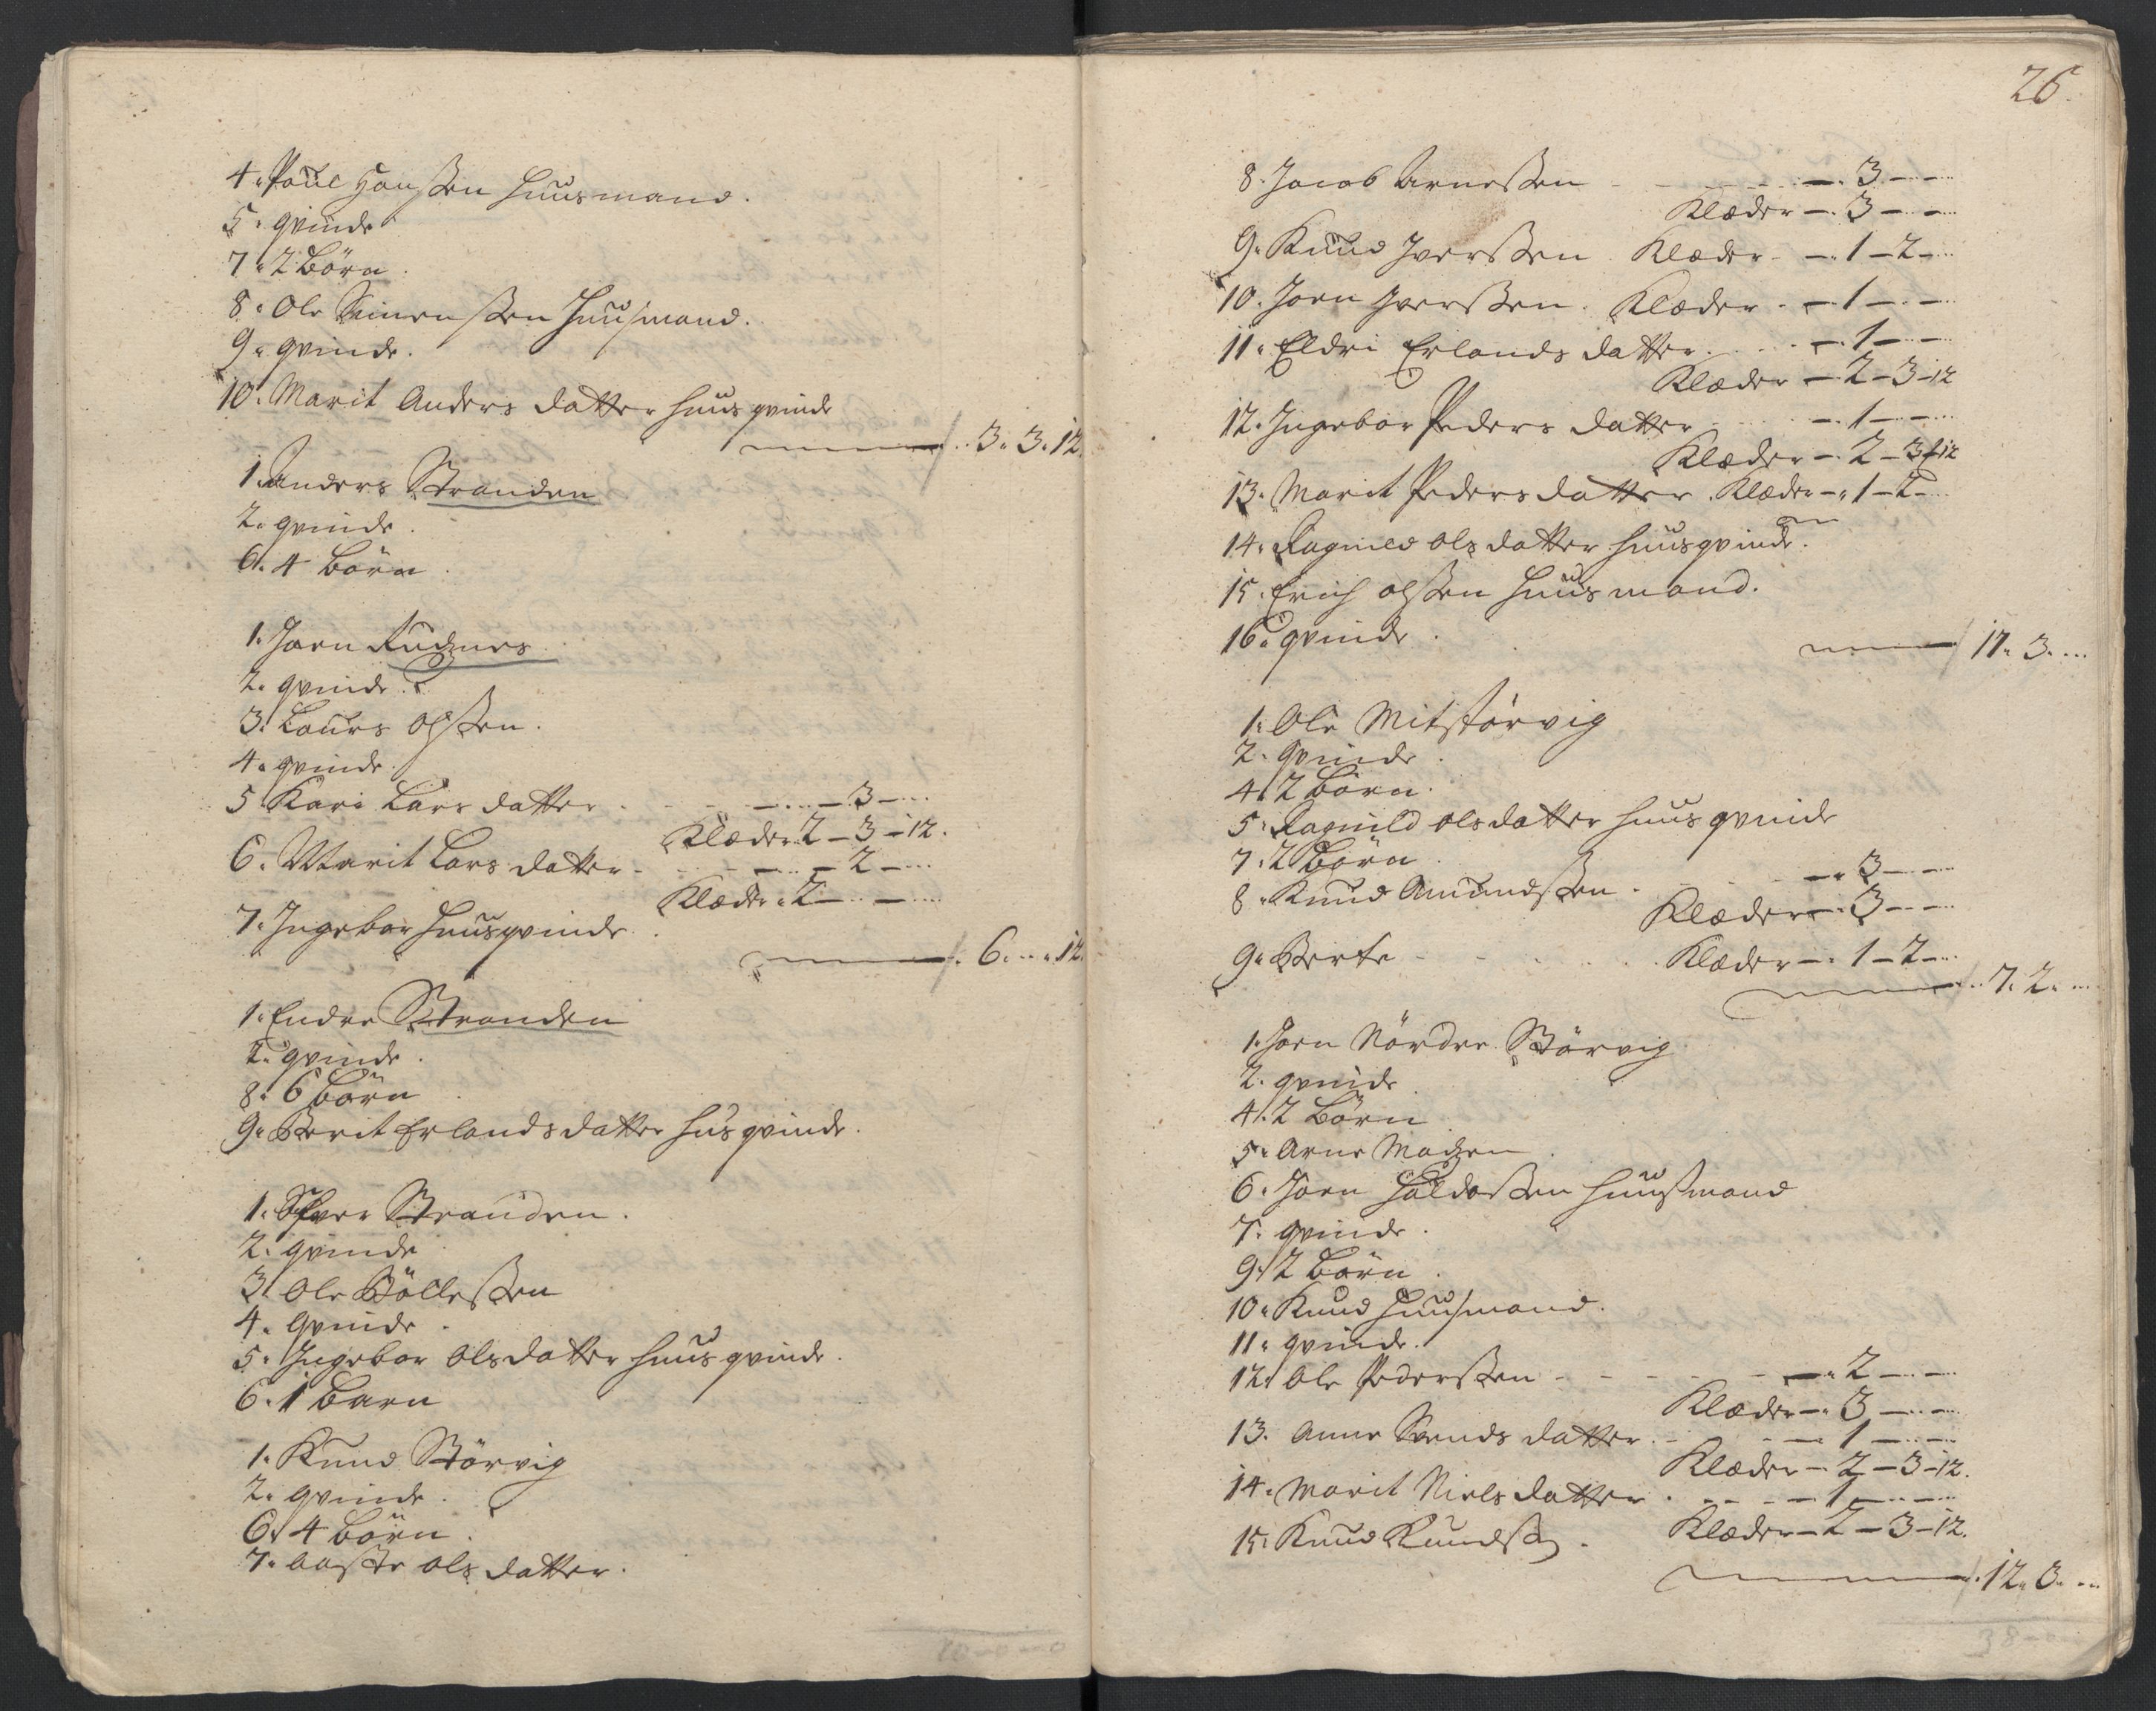 4. Poul Hanssen Huusmand.
5. qvinde
7. 2 Börn.
8. Ole Simenssen Huusmand.
9. qvinde.
10. Marit Anders datter huus qvinde
/. 3. 3. 12.
1. Anders Stranden
2. qvinde.
6. 4 börn.
1. Joen Rudznes
2. qvinde.
3. Lours Olssen.
4. qvinde.
5. Kari Lars datter - - - 3 - ..
Klæder 2 - 3 - 12.
6. Marit Lars datter - - - 2 - ..
Klæder. 2 - .. - ..
7. Ingebor huusqvinde.
/. 6. .. . 12.
1. Endre Stranden
2. qvinde.
8. 6 börn.
9. Berit Erlands datter hus qvinde.
1. Stranden.
2. qvinde
3. Ole Bölles​sen
4. qvinde.
5. Ingebor Olsdatter huus qvinde.
6. 1 barn
1. Knud Störvig
2. qvinde.
6. 4 börn.
7. Aaste Ols datter.
26.
8. Jacob Arnessen - - - 3 - .. -
Klæder - . 3 - .. -
9. Knud Iverssen Klæder - - . 1 - 2 - ..
10. Joen Iverssen. Klæder - - 1 - .. -
11. Eldri Erlands datter - . 1 - .. -
Klæder - 2 - 3 - 12
12. Ingebor Peders datter - . 1 - .. -
Klæder - . 2 - 3 - 12
13. Marit Peders datter. Klæder - . 1 - 2 - ..
14. Ragnild Ols datter huusqvinde.
15. Erich Olssen Huusmand.
16. qvinde.
/ 17. 3. ...
1. Ole Mitstörvig
2. qvinde.
4. 2 börn.
5. Ragnild Olsdatter huus qvinde
7. 2 Börn.
8. Knud Amundssen. - . 3 - .. -
Klæder - . 3 - .. -
9. Berte - - - Klæder - . 1 - 2 - ..
/. 7. 2. ...
1. Joen Nördre Störvig
2. qvinde
4. 2 Börn
5. Arne Madzen.
6. Joen Haldossen Huusmand
7. qvinde.
9. 2 börn.
10. Knud Huusmand.
11. qvinde.
12. Ole Pederssen - - - - . 2 - .. -
Klæder - . 3 - .. -
13. Anne Svends datter. - - 1 - .. -
Klæder - 2 - 3 - 12.
14. Marit Niels datter. - - - 1 - .. -
Klæder - 2 - 3 - 12.
15. Knud Knuds​.
/. 12. 3. ...